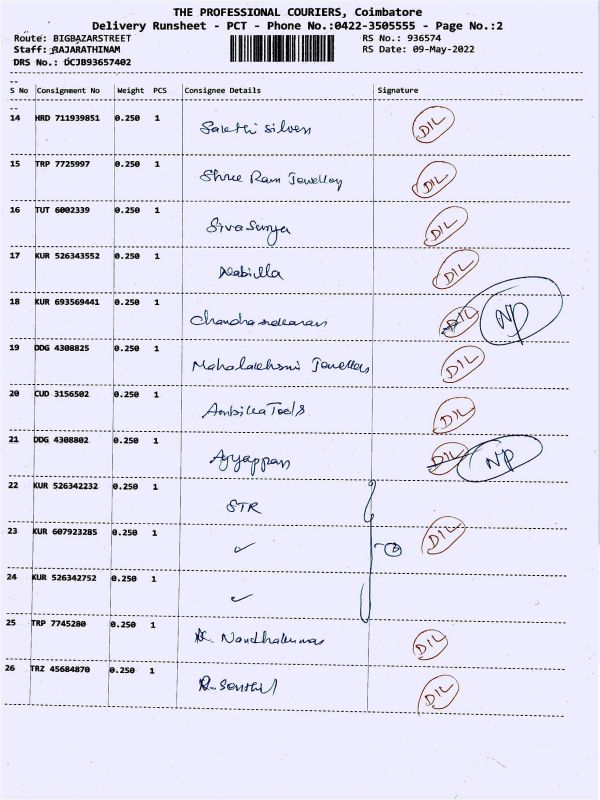 THE PROFESSIONAL COURIERS, Coimbatore
Delivery Runsheet - PCT - Phone No.:0422-3505555 - Page No.:2
Route: BIGBAZARSTREET RS No.: 936574
Staff: RAJARATHINAM RS Date: 09-May-2022
DRS No.: DCJB93657402
S No Consignment No Weight PCS Consignee Details Signature
14 HRD 711939851 0.250 1 Sakthi Silvers DIL
15 TRP 7725997 0.250 1 Shree Ram Jewellery DIL
16 TUT 6002339 0.250 1 Siva Surya DIL
17 KUR 526343552 0.250 1 Nabilla DIL
18 KUR 693569441 0.250 1 Chandrasekaran DIL NP
19 DDG 4308825 0.250 1 Mahalakshmi Jewellers DIL
20 CUD 3156502 0.250 1 Ambika Tools DIL
21 DDG 4308802 0.250 1 Ayyappan DIL NP
22 KUR 526342232 0.250 1 STR
23 KUR 607923285 0.250 1 DIL
24 KUR 526342752 0.250 1
25 TRP 7745280 0.250 1 Nandhakumar DIL
26 TRZ 45684870 0.250 1 R. Senthil DIL